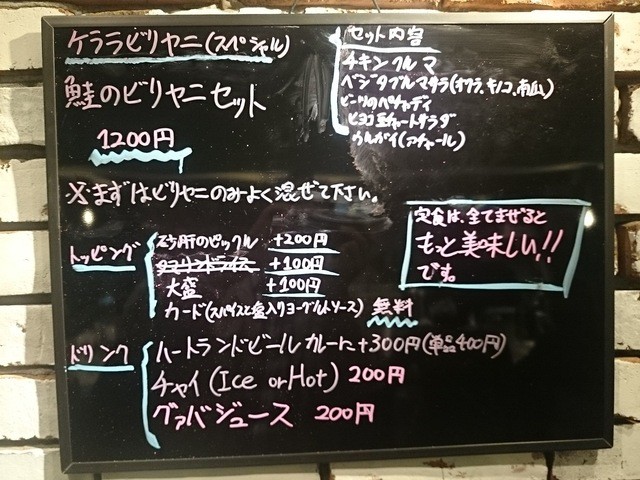 ケララビリヤニ(スペシャル)
鮭のビリヤニセット
1200円
セット内容
チキンクルマ
ベジタブルマサラ(オクラ,キノコ,南瓜)
ビーツのペチャディ
ヒヨコ豆チャートサラダ
(アチャール)
※まずはビリヤニのみよく混ぜて下さい。
定食は、全てまぜると
もっと美味しい!!
です。
トッピング
砂肝のピックル +200円
タマリンドライス +100円
大盛 +100円
カード(スパイスと塩入りヨーグルトソース) 無料
ドリンク
ハートランドビール カレーに+300円(単品400円)
チャイ(Ice or Hot) 200円
グァバジュース 200円